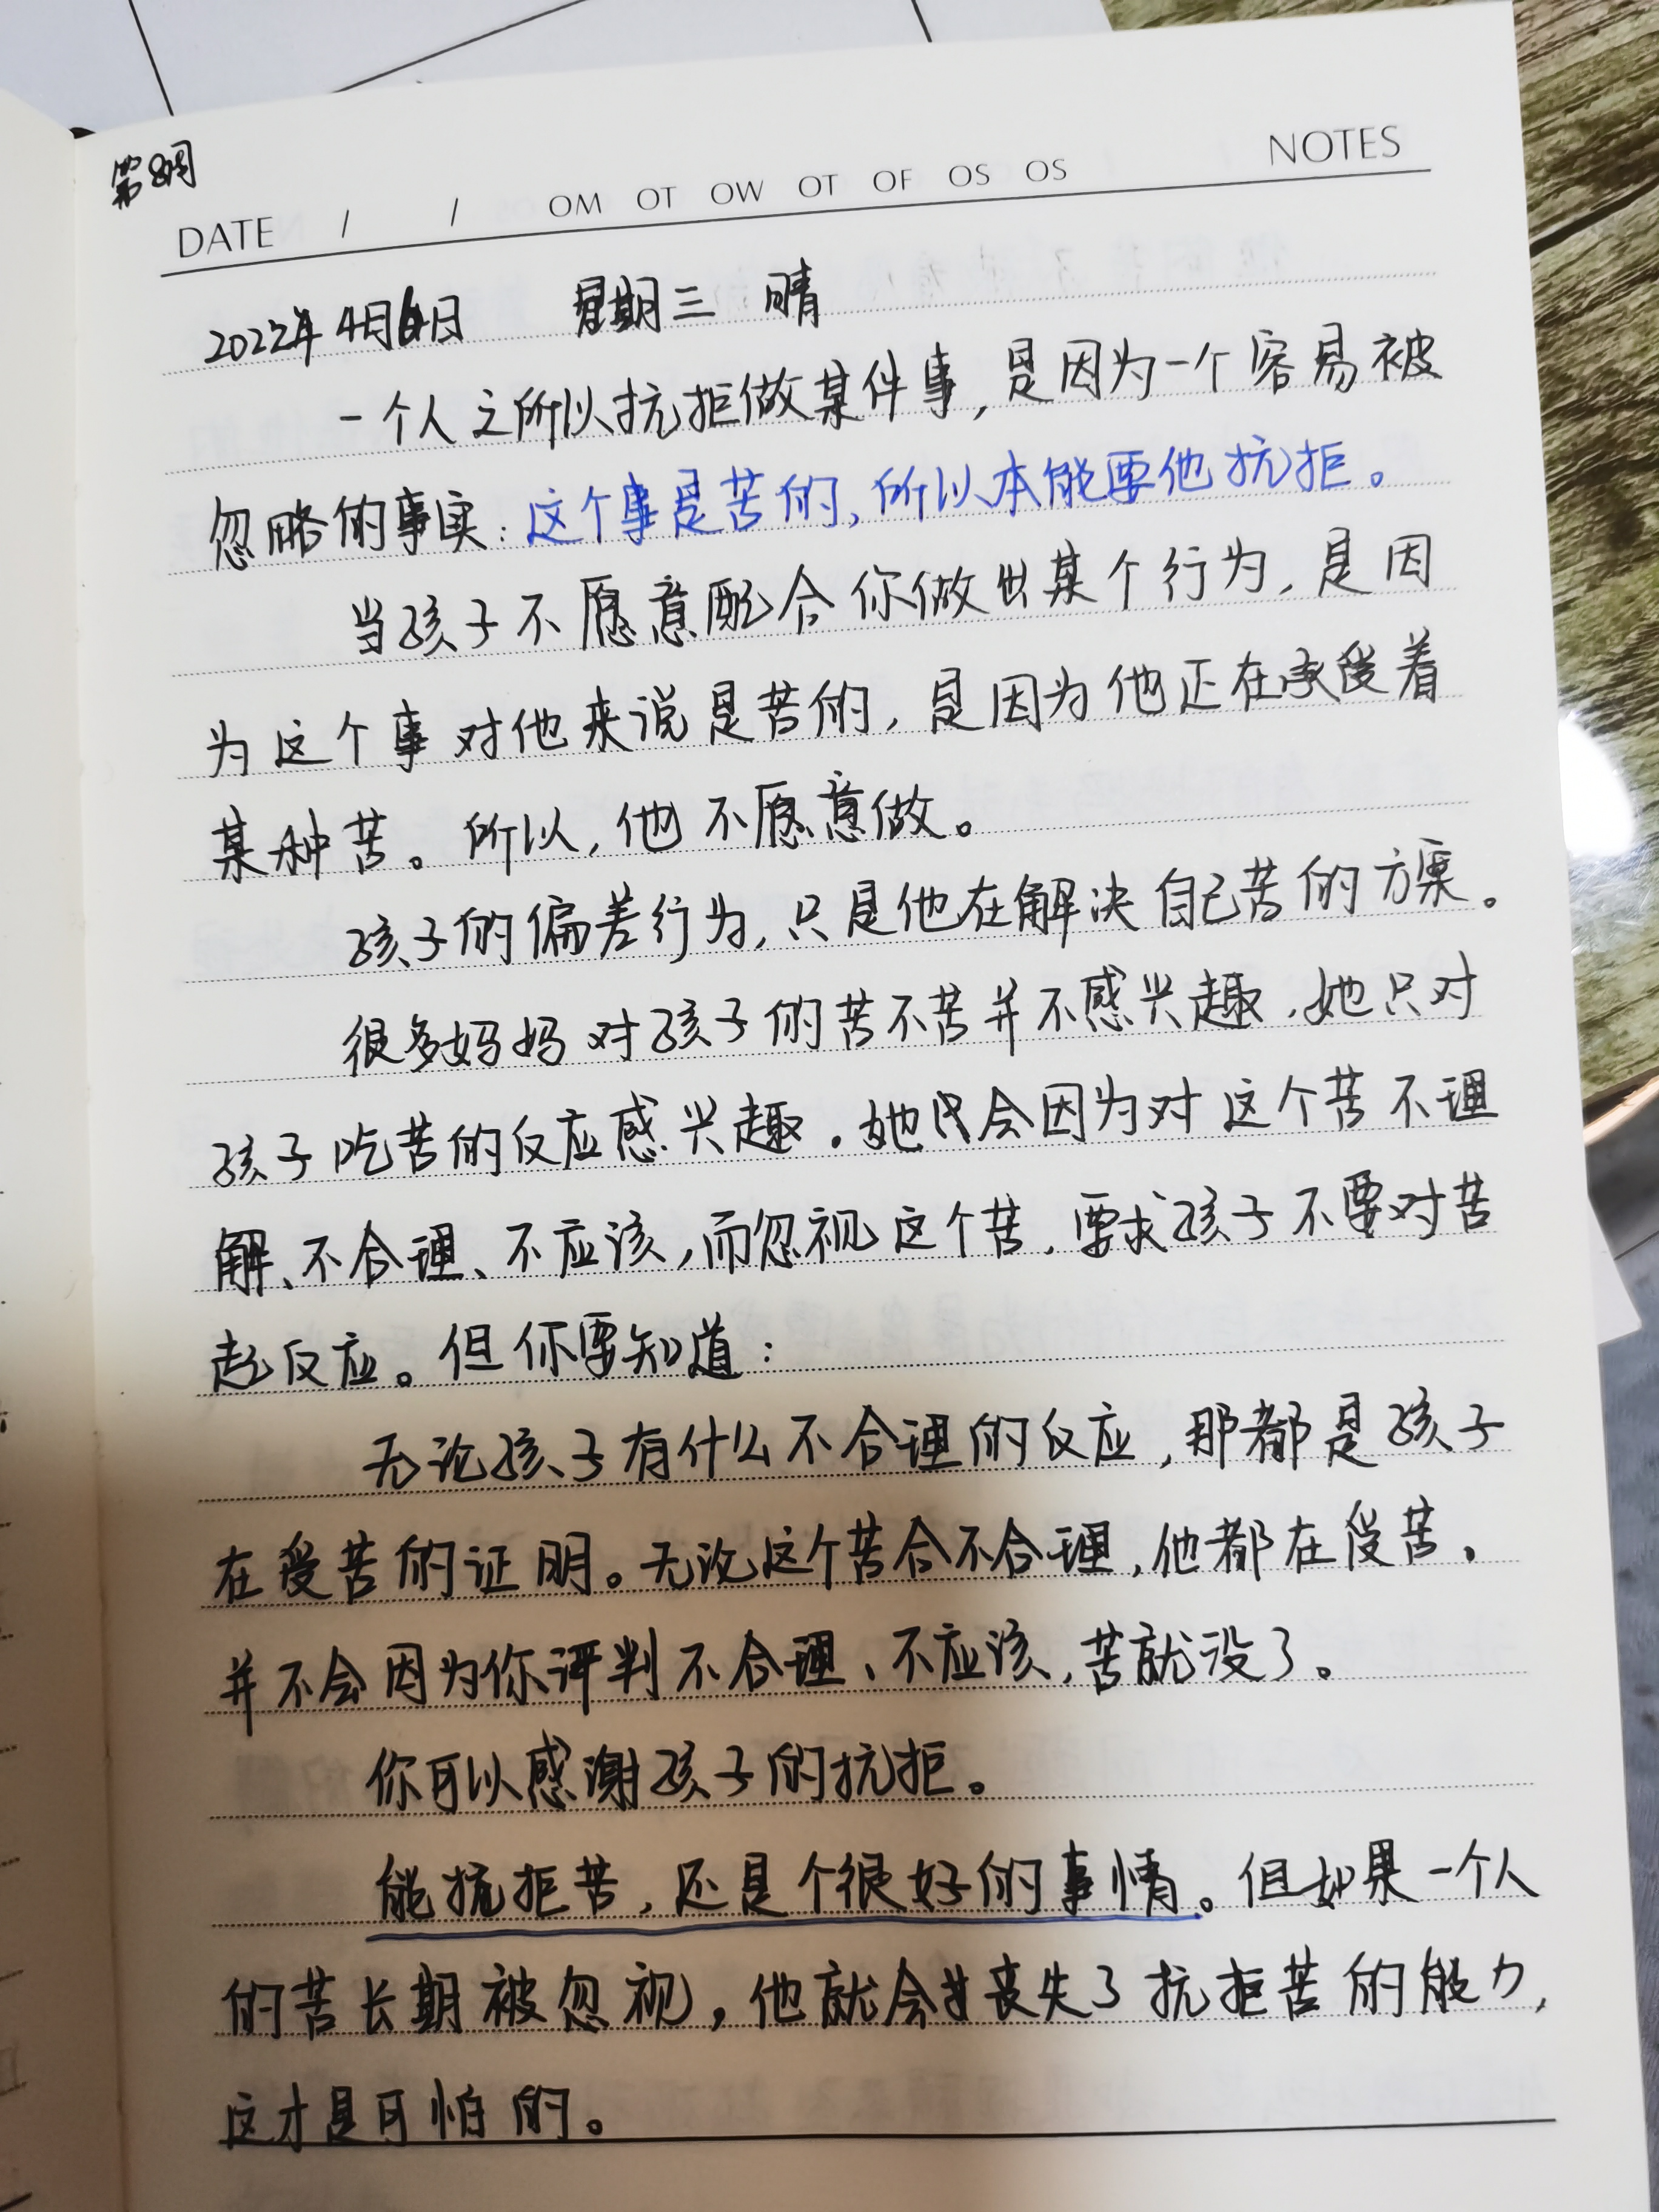 第8周
NOTES
DATE / / OM OT OW OT OF OS OS
2022年4月6日 星期三 晴
一个人之所以抗拒做某件事,是因为一个容易被
忽略的事实:这个事是苦的,所以本能要他抗拒。
当孩子不愿意配合你做出某个行为,是因
为这个事对他来说是苦的,是因为他正在承受着
某种苦。所以,他不愿意做。
孩子的偏差行为,只是他在解决自己苦的方案。
很多妈妈对孩子的苦不苦并不感兴趣.她只对
孩子吃苦的反应感兴趣.她只会因为对这个苦不理
解、不合理、不应该,而忽视这个苦,要求孩子不要对苦
起反应。但你要知道:
无论孩子有什么不合理的反应,那都是孩子
在受苦的证明。无论这个苦合不合理,他都在受苦.
并不会因为你评判不合理、不应该,苦就没了。
你可以感谢孩子的抗拒。
能抗拒苦,还是个很好的事情。但如果一个人
的苦长期被忽视,他就会丧失了抗拒苦的能力,
这才是可怕的。